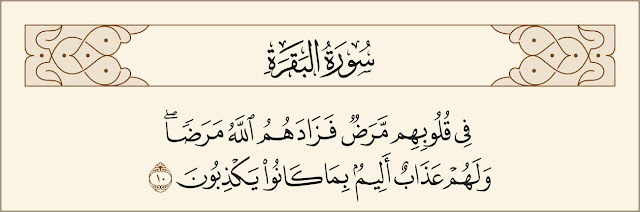 سُورَةُ البَقَرَةِ
فِي قُلُوبِهِم مَّرَضٌ فَزَادَهُمُ ٱللَّهُ مَرَضًاۖ
وَلَهُمْ عَذَابٌ أَلِيمُۢ بِمَا كَانُوا۟ يَكْذِبُونَ ١٠